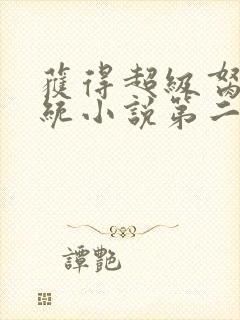 獲得超級
統小說第二
譚艷